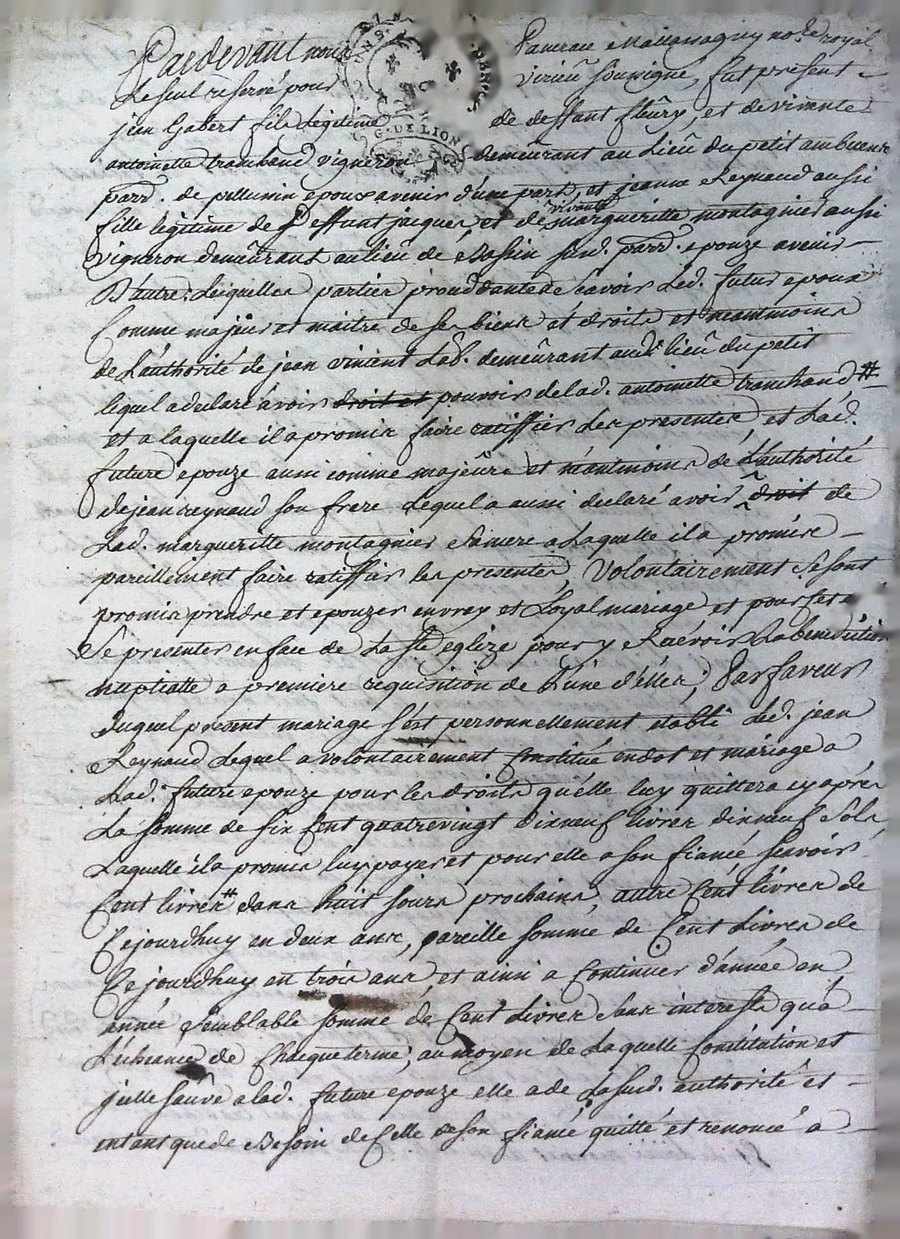 Pardevant nous notre royal
Le seul reservé pour virieu soussigné, fut present
jean Gabert fils legitime de deffant fleury, et de vivente
G. DE LION
antoinette tranchand vigneron demeûrant au Lieû du petit
parr. de pellussin epoux avenir d'une part, et jeanne Reynaud aussi
fille legitime de deffant jacques, et de vivante margueritte montagnier aussi
vigneron demeûrant au lieû de susd. parr. epouze avenir
D'autre; Lesquelles parties procedantes scavoir Led. futur epoux
Comme majeur et maitre de ses biens et droits et neantmoins
de L'authorité de jean vincent Lab. demeûrant aud. lieû du petit
lequel a declaré avoir droit et pouvoir de lad. antoinette tranchand #
et a laquelle il a promis faire ratiffier les presentes et Lad.
future epouze aussi comme majeûre et neantmoins de L'authorité
de jean reynaud son frere Lequel a aussi declaré avoir droit de
Lad. margueritte montagnier sa mere a Laquelle il a promis
pareillement faire ratiffier les presentes, Volontairement se sont
promis prendre et epouzer en vray et Loyal mariage et pour cet
Se presenter en face de La Ste eglize pour y Recevoir La benediction
nuptialle a premiere requisition de L'une d'elles; Par faveur
duquel present mariage s'est personnellement etabli Led. jean
Reynaud Lequel a volontairement Constitué en dot et mariage a
Lad. future epouze pour les droits qu'elle luy quittera cy apres
La somme de six Cent quatrevingt dixneuf livres dixneuf sols
Laquelle il a promis luy payer et pour elle a son fiancé scavoir
Cent livres # dans huit jours prochains, autre Cent livres de
Cejourdhuy en deux ans, pareille somme de Cent Livres de
Cejourdhuy en trois ans et ainsi a Continuer d'année en
année semblable somme de Cent Livres sans interests qu'a
L'echeance de Chacque terme, au moyen de Laquelle Constitution et
jcelle sauve a lad. future epouze elle a de La susd. authorité et
entant que de Besoin de Celle de son fiancé quitté et renoncé a